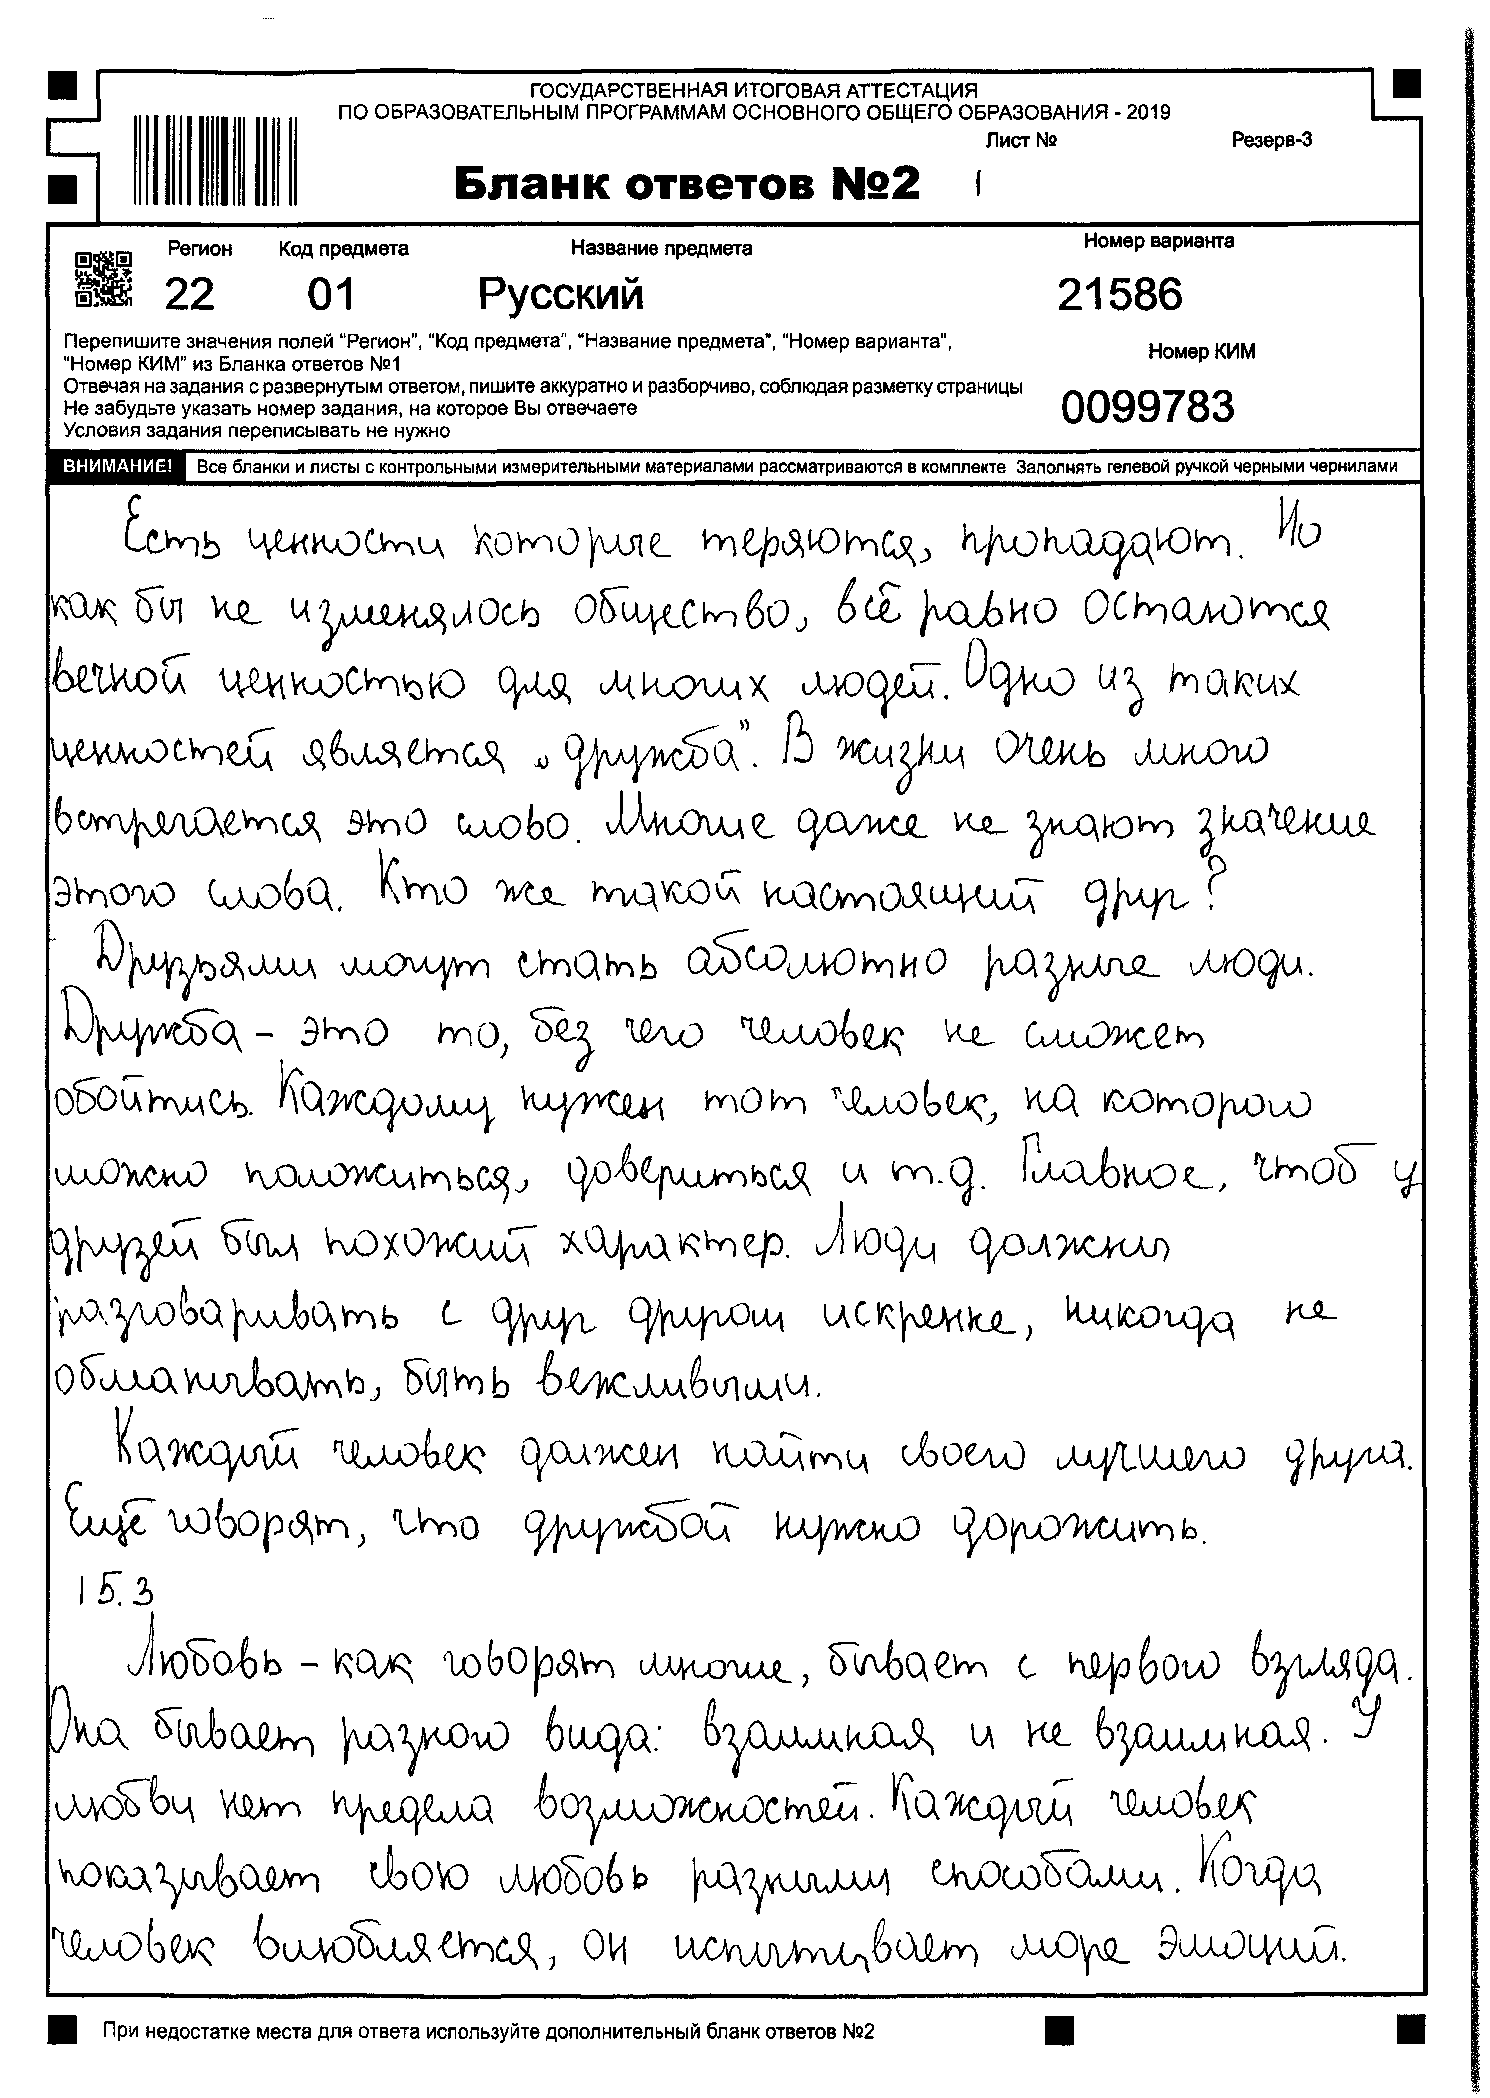 ГОСУДАРСТВЕННАЯ ИТОГОВАЯ АТТЕСТАЦИЯ
ПО ОБРАЗОВАТЕЛЬНЫМ ПРОГРАММАМ ОСНОВНОГО ОБЩЕГО ОБРАЗОВАНИЯ - 2019
Лист № Резерв-3
Бланк ответов №2 1
Регион Код предмета Название предмета Номер варианта
22 01 Русский 21586
Перепишите значения полей "Регион", "Код предмета", "Название предмета", "Номер варианта",
"Номер КИМ" из Бланка ответов №1
Номер КИМ
Отвечая на задания с развернутым ответом, пишите аккуратно и разборчиво, соблюдая разметку страницы
Не забудьте указать номер задания, на которое Вы отвечаете
0099783
Условия задания переписывать не нужно
ВНИМАНИЕ! Все бланки и листы с контрольными измерительными материалами рассматриваются в комплекте Заполнять гелевой ручкой черными чернилами
Есть ценности которые теряются, пропадают. Но
как бы не изменялось общество, всё равно остаются
вечной ценностью для многих людей. Одно из таких
ценностей является „дружба". В жизни очень много
встречается это слово. Многие даже не знают значение
этого слова. Кто же такой настоящий друг?
Друзьями могут стать абсолютно разные люди.
Дружба - это то, без чего человек не сможет
обойтись. Каждому нужен тот человек, на которого
можно положиться, довериться и т.д. Главное, чтоб у
друзей был похожий характер. Люди должны
разговаривать с друг другом искренне, никогда не
обманывать, быть вежливыми.
Каждый человек должен найти своего лучшего друга.
Ещё говорят, что дружбой нужно дорожить.
15.3
Любовь - как говорят многие, бывает с первого взгляда.
Она бывает разного вида: взаимная и не взаимная. У
любви нет предела возможностей. Каждый человек
показывает свою любовь разными способами. Когда
человек влюбляется, он испытывает море эмоций.
При недостатке места для ответа используйте дополнительный бланк ответов №2